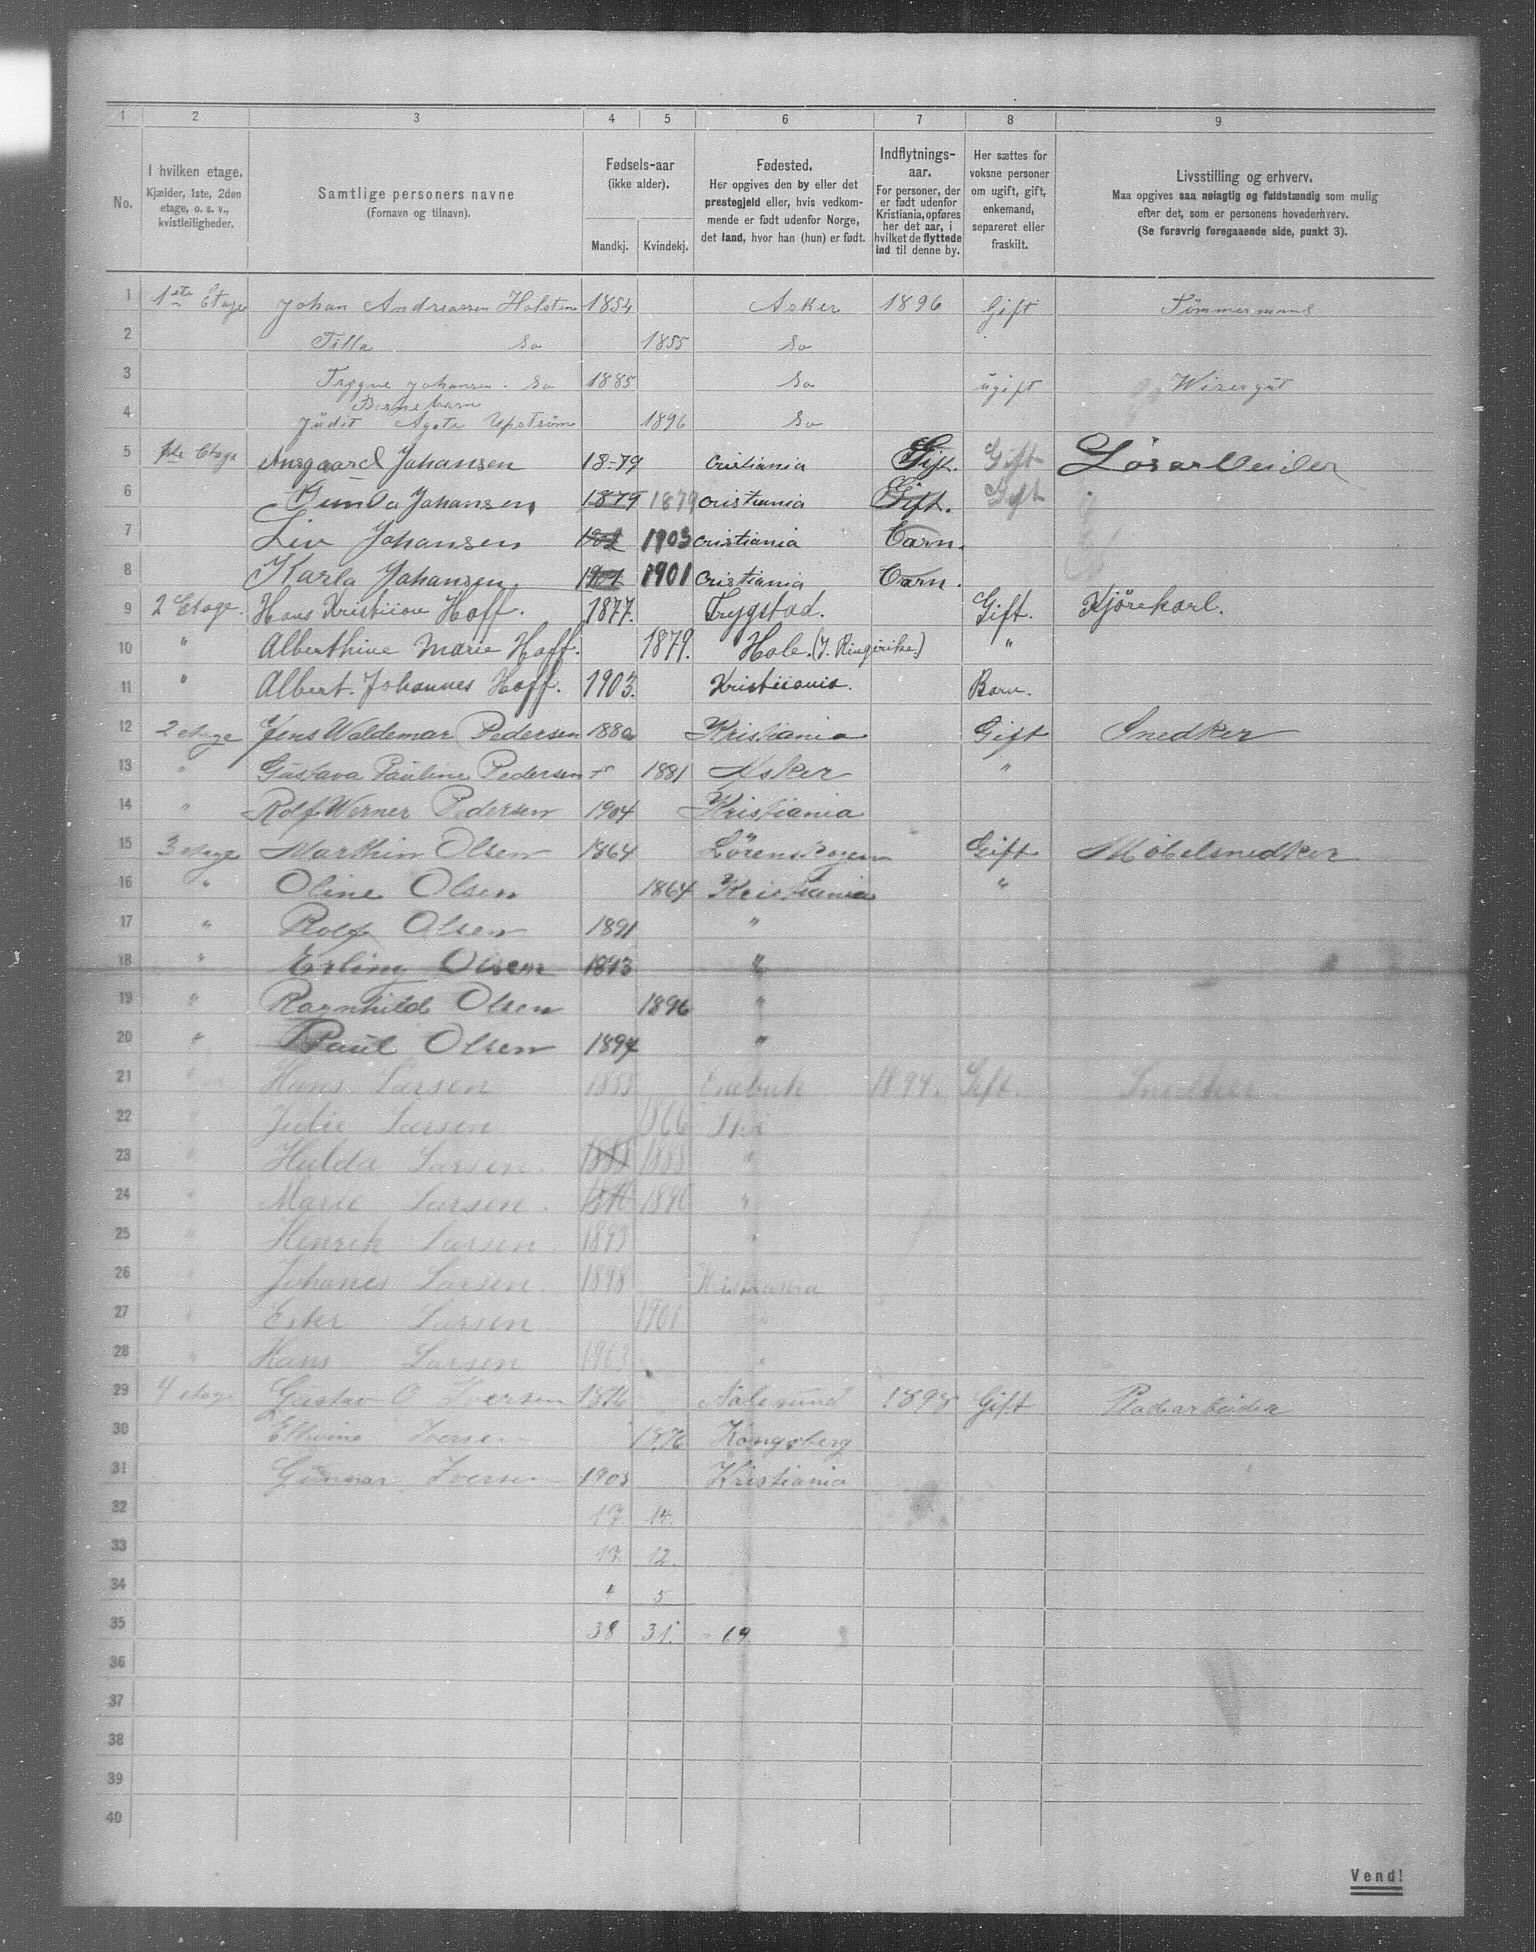 1 2 3 4 5 6 7 8 9
No.
I hvilken etage.
Kjælder, 1ste, 2den
etage, o. s. v.,
kvistleiligheder.
Samtlige personers navne
(Fornavn og tilnavn).
Fødsels-aar
(ikke alder).
Mandkj. Kvindekj.
Fødested.
Her opgives den by eller det
prestegjeld eller, hvis vedkom-
mende er født udenfor Norge,
det land, hvor han (hun) er født.
Indflytnings-
aar.
For personer, der
er født udenfor
Kristiania, opføres
her det aar, i
hvilket de flyttede
ind til denne by.
Her sættes for
voksne personer
om ugift, gift,
enkemand,
separeret eller
fraskilt.
Livsstilling og erhverv.
Maa opgives saa nøiagtig og fuldstændig som mulig
efter det, som er personens hovederhverv.
(Se forøvrig foregaaende side, punkt 3).
1 1ste Etage Johan Andreassen Holsten 1854 Asker 1896 Gift Tømmermand
2 Tilla So 1855 So
3 Trygve Johansen So 1885 So ugift Wisergut
Barnebarn
4 Judit Agate Upstrøm 1896 So
5 1ste Etage Ansgaard Johansen 1879 Cristiania Gift. Gift Løsarbeider
6 Gunda Johansen 1879 1879 Cristiania Gift. Gift "
7 Liv Johansen 1903 Cristiania Barn.
8 Karla Johansen 1901 1901 Cristiania Barn.
9 2 Etage. Hans Kristiian Hoff. 1877. Trygstad. Gift. Kjørekarl.
10 " Alberthine Marie Hoff. 1879. Hole. (J. Ringerike.) "
11 " Albert. Johannes Hoff. 1903. Kristiiania. Barn.
12 2 etage Jens Waldemar Pedersen 1880 Kristiania Gift Snedker
13 " Gustava Pauline Pedersen 1881 Asker "
14 " Rolf Werner Pedersen 1904 Kristiania
15 3 etage Marthin Olsen 1864 Lørenskogen Gift Møbelsnedker
16 " Oline Olsen 1864 Kristiania "
17 " Rolf Olsen 1891 "
18 " Erling Olsen 1893 "
19 " Ragnhild Olsen 1896 "
20 " Paul Olsen 1894 "
21 " Hans Larsen 1858 Enebak 1894. Gift. Snedker
22 " Julie Larsen 1866 Ski
23 " Hulda Larsen. 1888 1888 "
24 " Marie Larsen. 1890 1890 "
25 " Henrik Larsen. 1893 "
26 " Johanes Larsen. 1898 Kristiania
27 " Ester Larsen. 1901 "
28 " Hans Larsen 1903 "
29 4 etage Gustav O Iversen 1876 Aalesund 1898 Gift Pladsarbeider
30 Iversen 1876 Kongsberg
31 Gunnar Iversen 1903 Kristiania
32 17 14.
33 17 12.
34 4 5
35 38 31. 69
36
37
38
39
40
Vend!